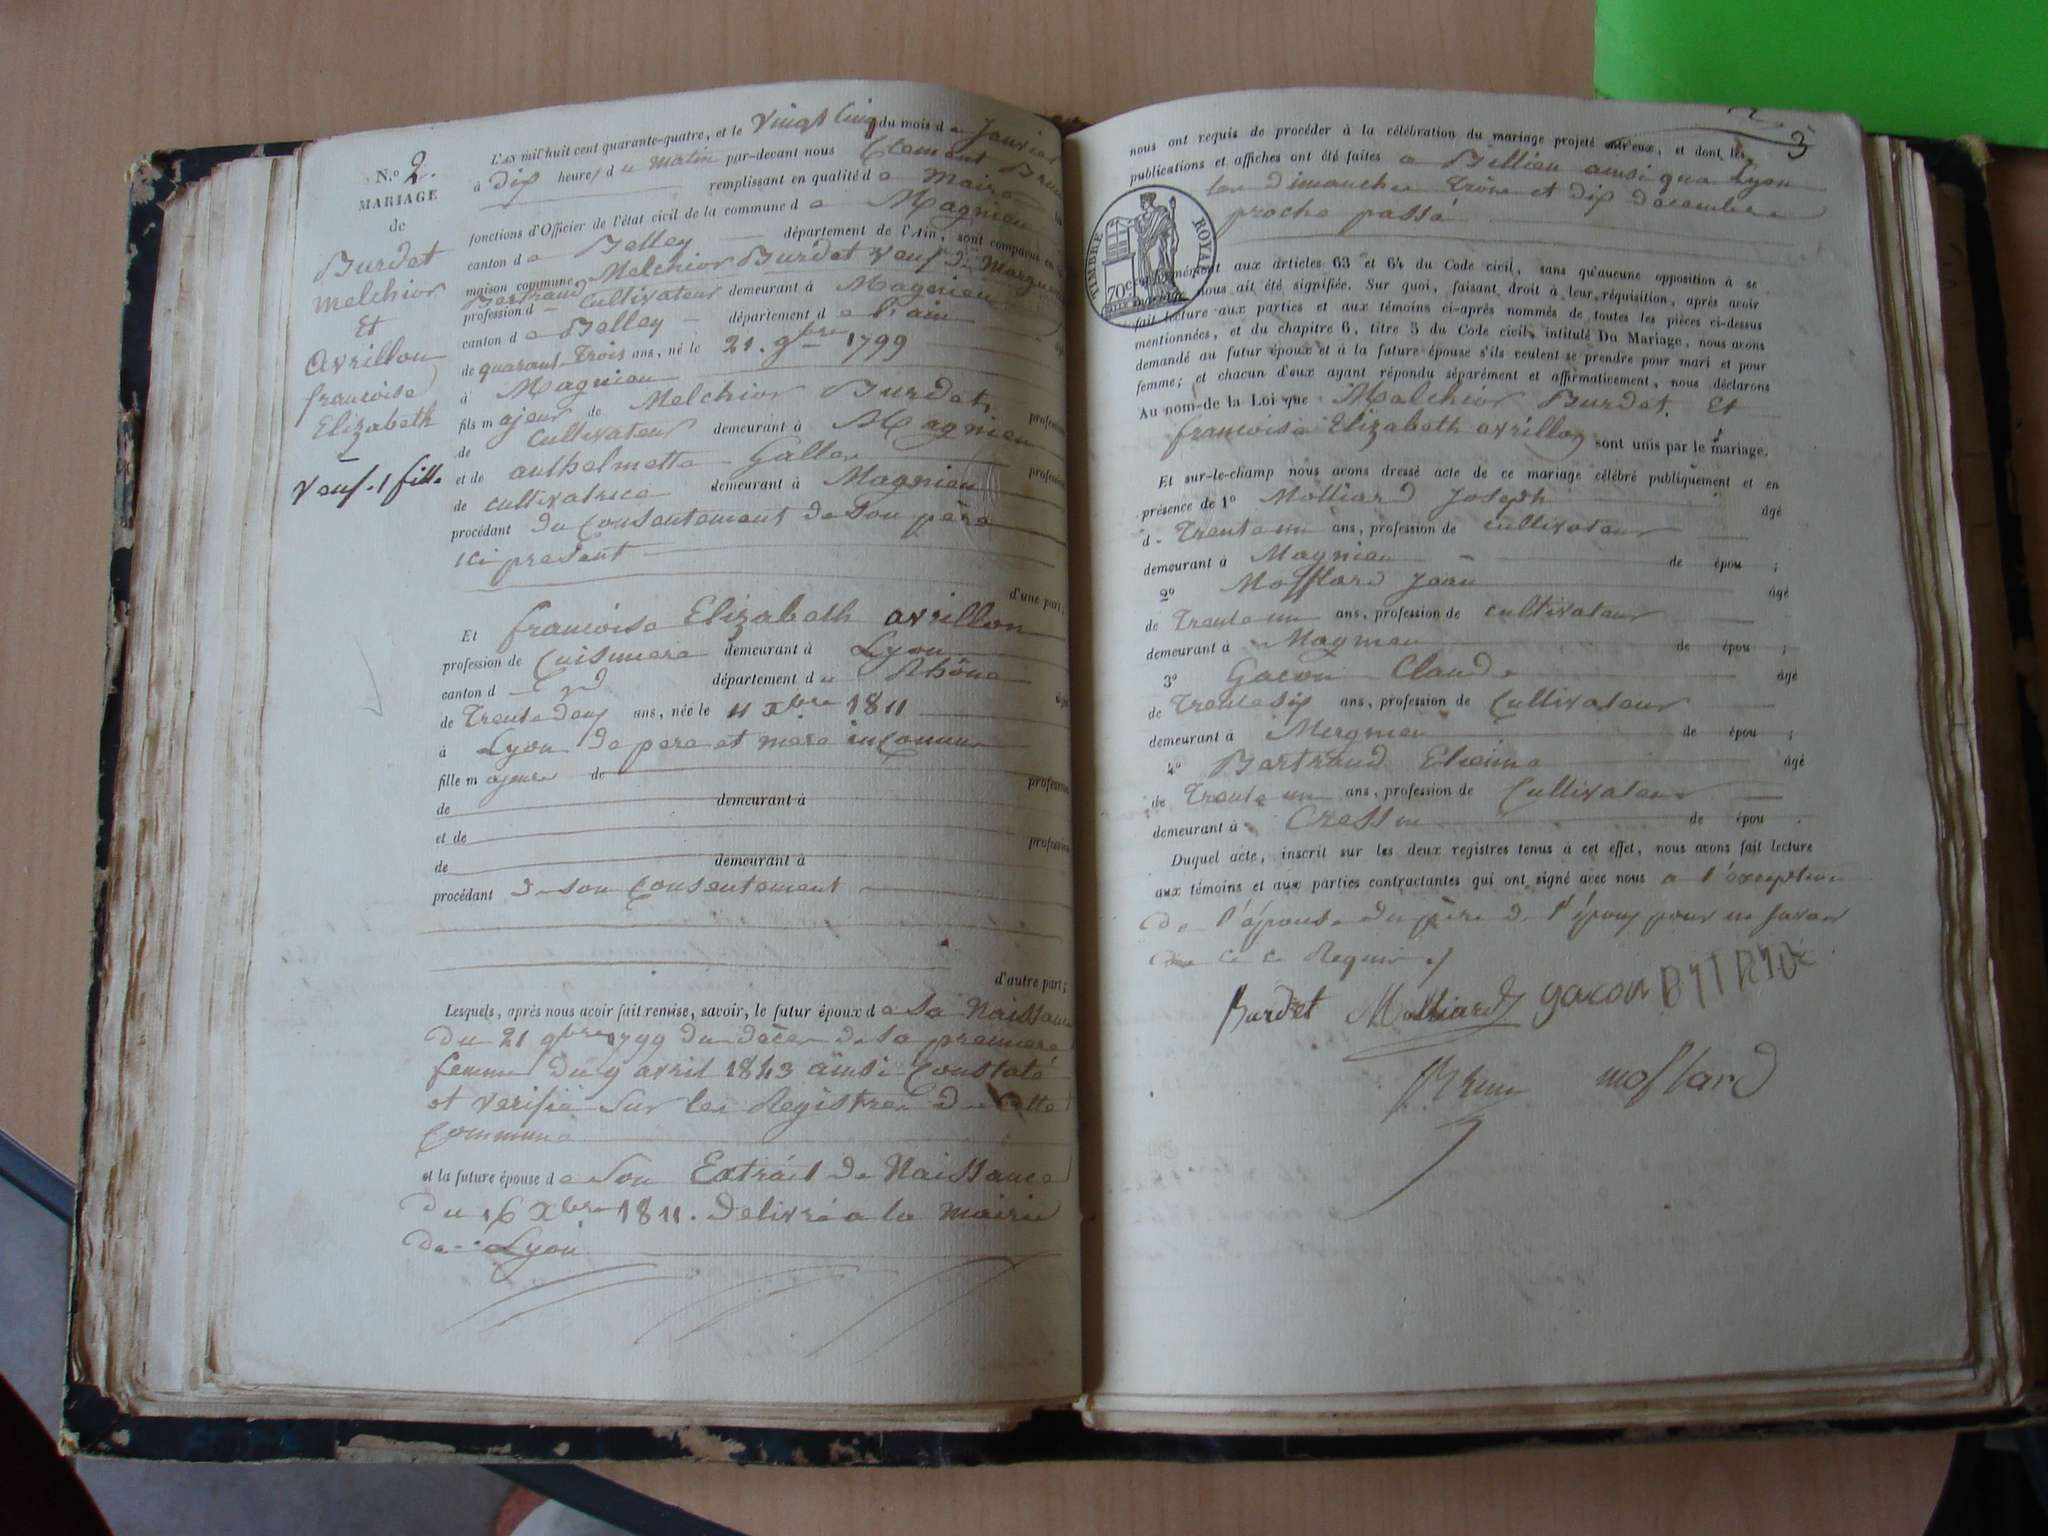 N.º 2.
MARIAGE
de
Burdet
Melchior
Et
Avrillon
francoise
Elizabeth
Veuf. 1 fille
L'AN mil huit cent quarante-quatre, et le Vingt Cinq du mois de Janvier
à Dix heures du Matin par-devant nous Clement Brun
remplissant en qualité de Maire
fonctions d'Officier de l'état civil de la commune de Magnieu
canton de Belley département de l'Ain, sont comparus en
maison commune Melchior Burdet veuf de Marguerite
Bertrand
profession d Cultivateur demeurant à Magnieu
canton de Belley département de l'ain
de quarant Trois ans, né le 21. 9bre 1799
à Magnieu
fils majeur de Melchior Burdet, profession
de Cultivateur demeurant à Magnieu
et de anthelmette Gallet profession
de cultivatrice demeurant à Magnieu
procédant du Consentement de Son père
ici present
d'une part;
Et francoise Elizabeth avrillon
profession de Cuisiniere demeurant à Lyon
canton d département du Rhône
de Trente deux ans, née le 11 Xbre 1811
à Lyon de pere et mere inconnu
fille majeure de profession
de demeurant à
et de profession
de demeurant à
procédant de son Consentement
d'autre part;
Lesquels, après nous avoir fait remise, savoir, le futur époux de Sa Naissance
Du 21 9bre 1799 du décès de Sa premiere
femme du 9 avril 1843 ainsi Constaté
et verifié Sur les Registres de Cette
Commune
et la future épouse de Son Extrait de Naissance
Du 16 Xbre 1811. Delivré a la Mairie
de Lyon
3
nous ont requis de procéder à la célébration du mariage projeté entr'eux, et dont les
publications et affiches ont été faites a Billieu ainsi qua Lyon
les Dimanches Trois et dix décembre
proche passé
TIMBRE ROYAL
70c
Conformément aux articles 63 et 64 du Code civil, sans qu'aucune opposition à se
nous ait été signifiée. Sur quoi, faisant droit à leur réquisition, après avoir
fait lecture aux parties et aux témoins ci-après nommés de toutes les pièces ci-dessus
mentionnées, et du chapitre 6, titre 5 du Code civil, intitulé Du Mariage, nous avons
demandé au futur époux et à la future épouse s'ils veulent se prendre pour mari et pour
femme; et chacun d'eux ayant répondu séparément et affirmativement, nous déclarons
Au nom de la Loi que Melchior Burdet. Et
francoise Elizabeth avrillon sont unis par le mariage.
Et sur-le-champ nous avons dressé acte de ce mariage célébré publiquement et en
présence de 1º Molliard Joseph âgé
d. Trente un ans, profession de cultivateur
demeurant à Magnieu de épou ;
2º Mofflard Jean âgé
de Trente un ans, profession de cultivateur
demeurant à Magnieu de épou ;
3º Gacon Claude âgé
de Trente Six ans, profession de Cultivateur
demeurant à Magnieu de épou ;
4º Bertrand Etienne âgé
de Trente un ans, profession de Cultivateur
demeurant à Cressin de épou .
Duquel acte, inscrit sur les deux registres tenus à cet effet, nous avons fait lecture
aux témoins et aux parties contractantes qui ont signé avec nous a l'exception
De l'épouse du père de l'époux pour ne savoir
de ce Requis
Burdet Molliard gacon
Brun moflard